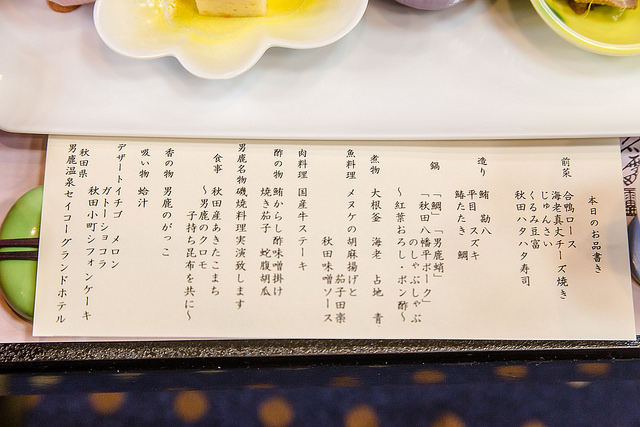 本日のお品書き
前菜 合鴨ロース
海老真丈チーズ焼き
じゅんさい
くるみ豆富
秋田ハタハタ寿司
造り 鮪 勘八
平目 スズキ
鰆たたき 鯛
鍋 「鯛」「男鹿蛸」
「秋田八幡平ポーク」
のしゃぶしゃぶ
～紅葉おろし・ポン酢～
煮物 大根釜 海老 占地 青
魚料理 メヌケの胡麻揚げと
茄子田楽
秋田味噌ソース
肉料理 国産牛ステーキ
酢の物 鮪からし酢味噌掛け
焼き茄子 蛇腹胡瓜
男鹿名物磯焼料理実演致します
食事 秋田産あきたこまち
～男鹿のクロモ
子持ち昆布を共に～
香の物 男鹿のがっこ
吸い物 蛤汁
デザート イチゴ メロン
ガトーショコラ
秋田小町シフォンケーキ
秋田県
男鹿温泉セイコーグランドホテル